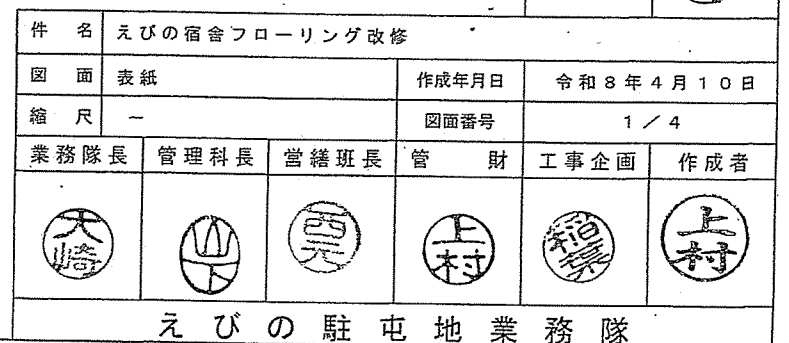 件名 えびの宿舎フローリング改修
図面 表紙 作成年月日 令和8年4月10日
縮尺 － 図面番号 1／4
業務隊長 管理科長 営繕班長 管財 工事企画 作成者
大崎 山下 西元 上村 稲葉 上村
えびの駐屯地業務隊